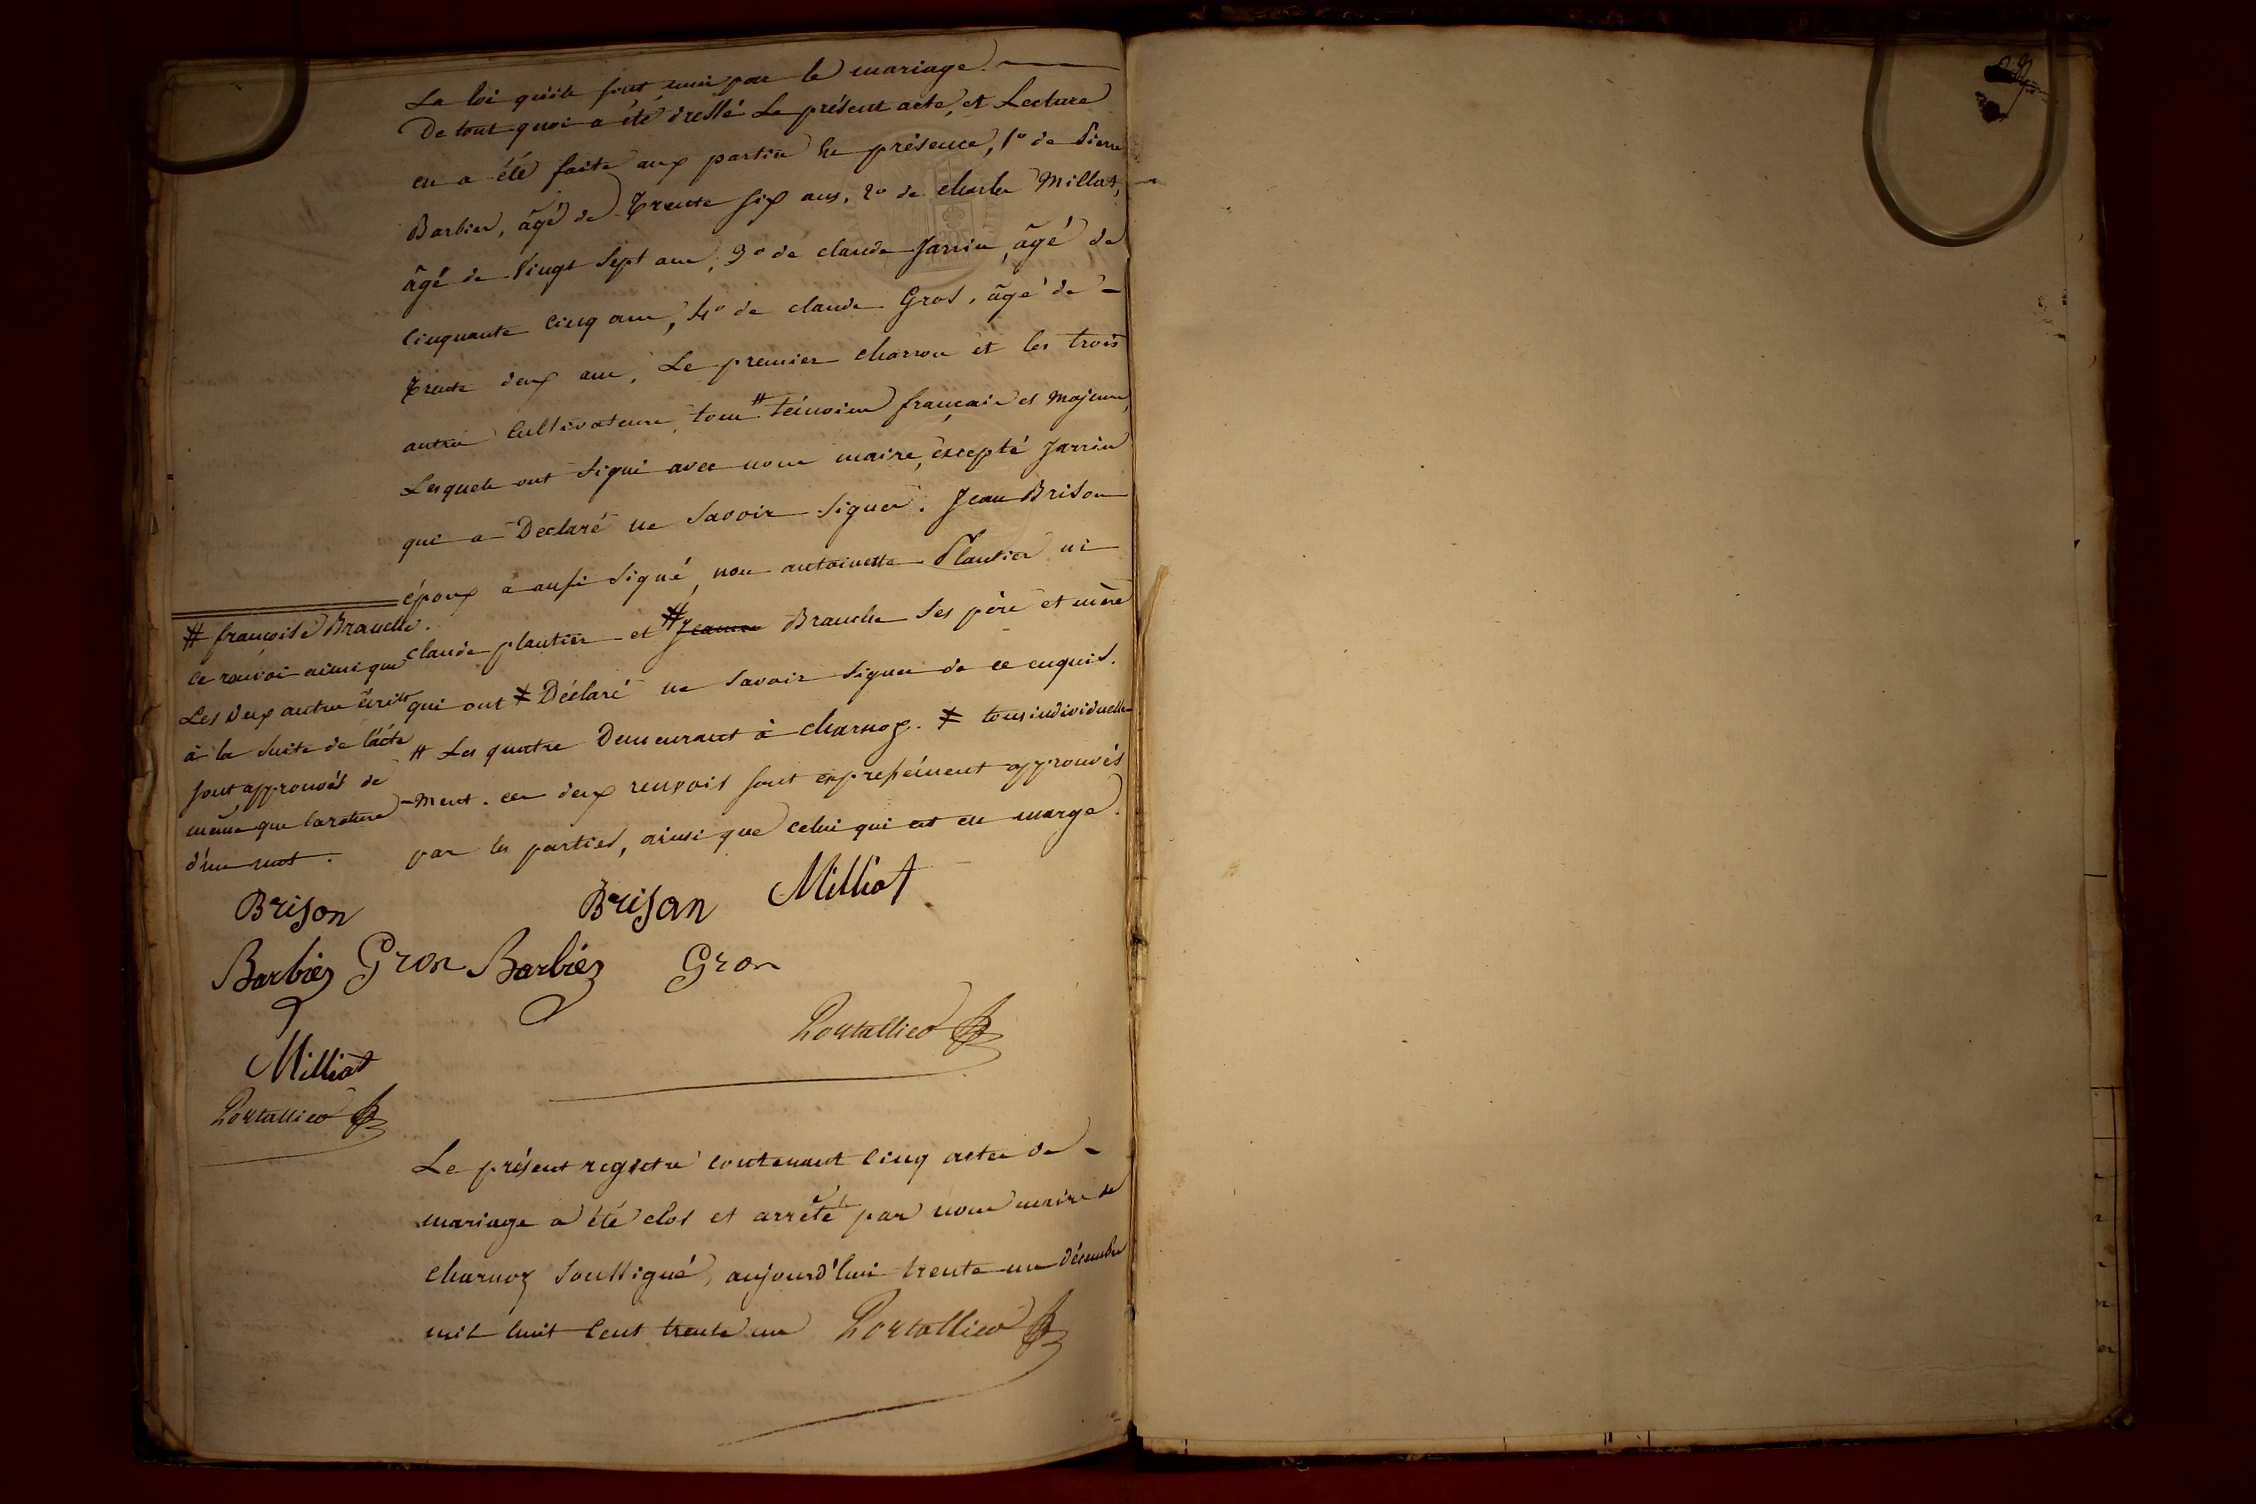 La loi qu'ils sont unis par le mariage.
De tout quoi a été dressé Le présent acte, et Lecture
en a été faite aux parties En présence, 1º de Pierre
Barbier, âgé de Trente six ans, 2º de charles Millat,
âgé de Vingt Sept ans, 3º de claude Jarrin, âgé de
Cinquante Cinq ans, 4º de claude Gros, âgé de -
Trente deux ans, Le premier charron et les trois
autres Cultivateurs, tous # témoins français et Majeurs,
Lesquels ont Signé avec nous maire, éxcepté Jarrin
qui a Déclaré ne Savoir Signer. Jean Brison
époux a aussi Signé, non antoinette Plantier ni
claude plantier et # Jeanne Branche Ses père et mère
qui ont ≠ Déclaré ne Savoir Signer de ce enquis.
# Les quatre Demeurant à charnoz. ≠ tous individuelle
-ment. ces deux renvois sont expressément approuvés
par les parties, ainsi que celui qui est en marge.
# françoise Branche.
Ce renvoi ainsi que
Les deux autres écrits
à la Suite de l'acte
sont approuvés de
même que la rature
d'un mot.
Brison
Brison Milliat
Barbier Gron Barbier Gron
Portallier
Milliat
Portallier
Le présent registre contenant Cinq actes de -
mariage a été clos et arrêté par nous maire de
charnoz Soussigné, aujourd'hui trente un décembre
mil huit Cent trente un Portallier